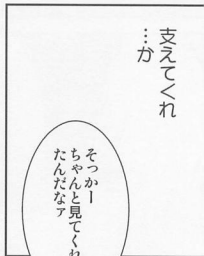 支えてくれ
…か
そっかー
ちゃんと見てくれ
たんだなァ